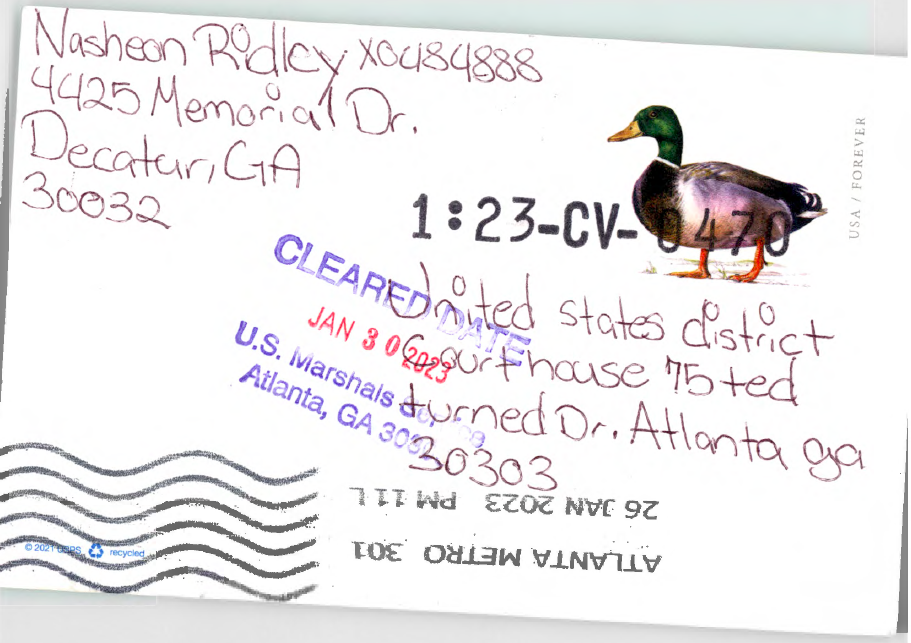 Nasheon Ridley X0484888
4425 Memorial Dr.
Decatur, GA
30032
USA / FOREVER
1:23-CV-0470
CLEARED DATE
JAN 30 2023
U.S. Marshals Service
Atlanta, GA 303
United states district
Courthouse 75 ted
turned Dr. Atlanta ga
30303
26 JAN 2023 PM 11 L
ATLANTA METRO 301
© 2021 USPS recycled